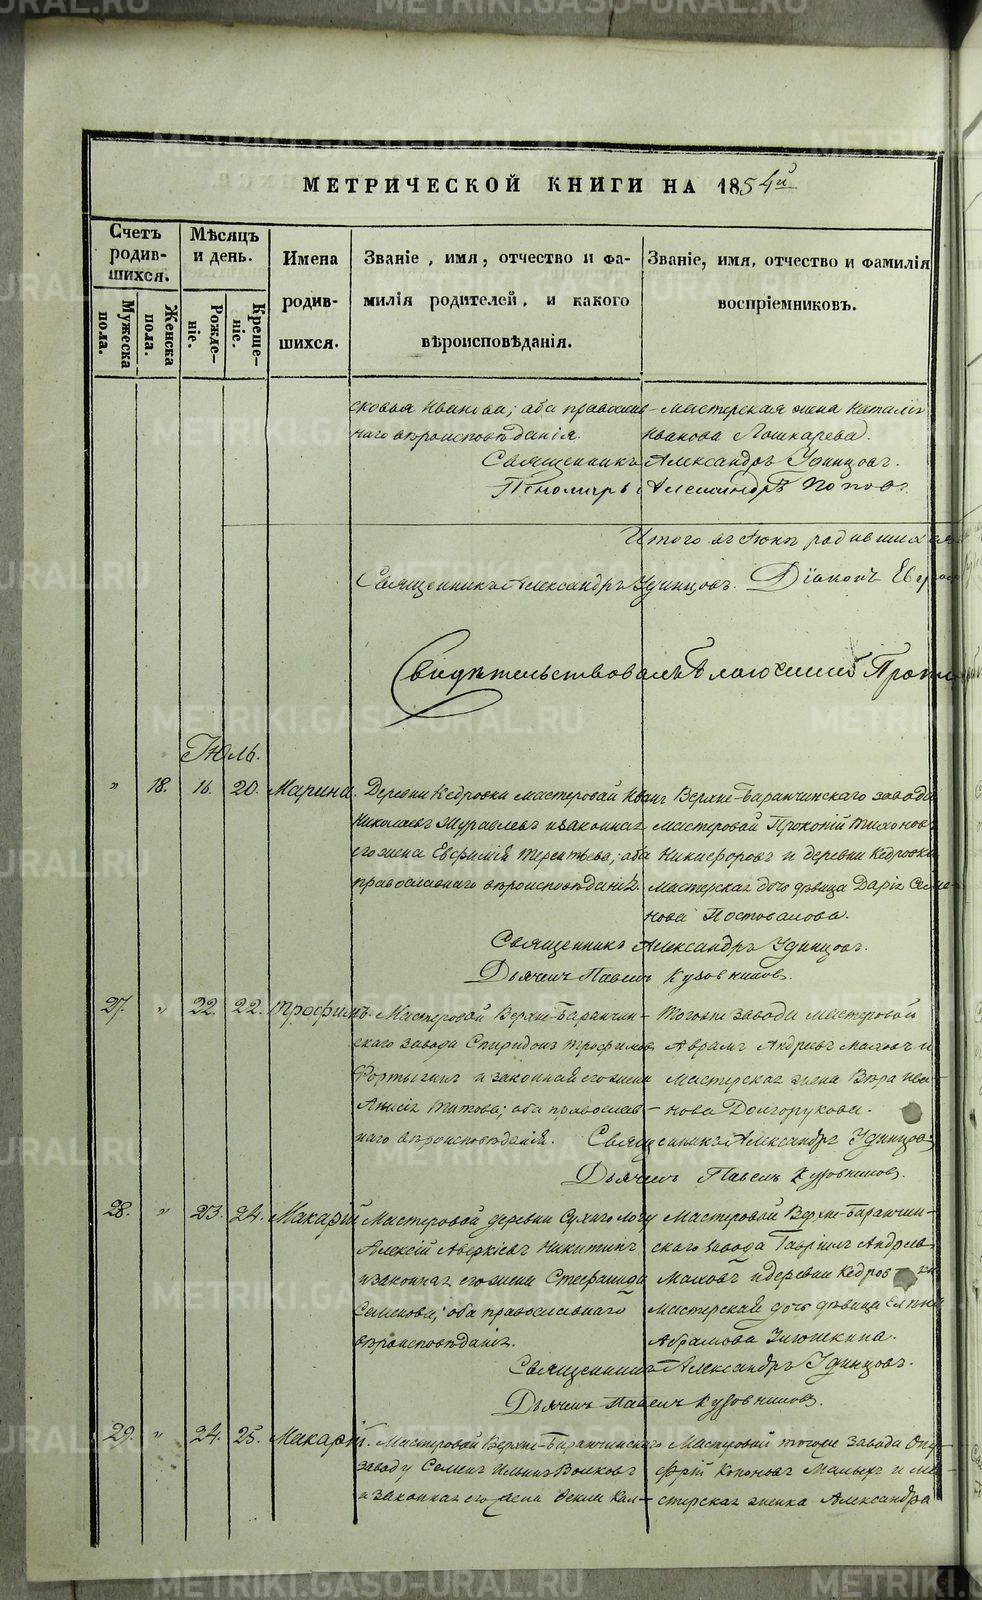 МЕТРИЧЕСКОЙ КНИГИ НА 1854й
Счетъ родив-шихся.
Мѣсяцъ и день.
Имена родив-шихся.
Званіе, имя, отчество и фа-
милія родителей, и какого
вѣроисповѣданія.
Званіе, имя, отчество и фамилія
воспріемниковъ.
Мужеска пола.
Женска пола.
Рожде-ніе.
Креще-ніе.
Иванова; оба православ- Мастерская жена
наго вѣроисповѣданія. Иванова Лошкарева.
Священникъ Александръ Удинцовъ.
Пономарь Александръ Поповъ.
Итого въ Іюнѣ родившихся
Священникъ Александръ Удинцовъ. Діаконъ
Свидѣтельствовалъ Благочинный
Іюль.
" 18. 16. 20. Марина. Деревни Кедровки мастеровой Иванъ Верхне-Баранчинскаго завода
Николаевъ Журавлевъ и законная мастеровой Прокопій Тихоновъ
его жена Евфимія Терентьева; оба Никифоровъ и деревни Кедровки
православнаго вѣроисповѣданія. Мастерская дочь дѣвица Дарія Семе-
нова Постовалова.
Священникъ Александръ Удинцовъ.
Дьячекъ Павелъ Кузовниковъ.
27. " 22. 22. Трофимъ. Мастеровой Верхне-Баранчин- Тогоже завода мастеровой
скаго завода Спиридонъ Трофимовъ Аврамъ Андреевъ Маховъ и
и законная его жена Мастерская жена Вѣра Ива-
Анисія Титова; оба православ- нова Долгорукова.
наго вѣроисповѣданія. Священникъ Александръ Удинцовъ
Дьячекъ Павелъ Кузовниковъ.
28. " 23. 24. Макарій Мастеровой деревни Сухаго логу Мастеровой Верхне-Баранчин-
Алексій Аверкіевъ Никитинъ скаго завода Гавріилъ Андреевъ
и законная его жена Стефанида Маховъ и деревни
Семенова; оба православнаго Мастерская дочь дѣвица
вѣроисповѣданія. Абрамова
Священникъ Александръ Удинцовъ.
Дьячекъ Павелъ Кузовниковъ.
29. " 24. 25. Макарій. Мастеровой Верхне-Баранчинскаго Мастеровой тогоже завода Ону-
заводу Семенъ Ильинъ Волковъ фрій Кононовъ Малыхъ и ма-
и законная его жена Фекла стерская женка Александра